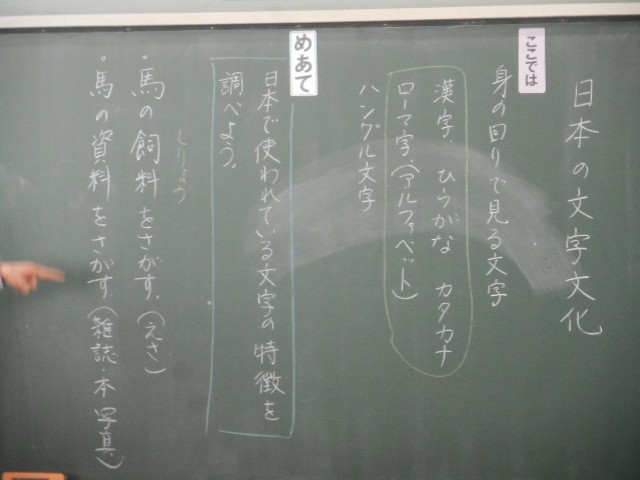 日本の文字文化
ここでは
身の回りで見る文字
漢字、ひらがな カタカナ
ローマ字、(アルファベット)
ハングル文字
めあて
日本で使われている文字の特徴を
調べよう。
しりょう
・馬の飼料をさがす。(えさ)
・馬の資料をさがす。(雑誌・本・写真)